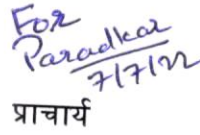 For
Paradkar
7/7/22
प्राचार्य